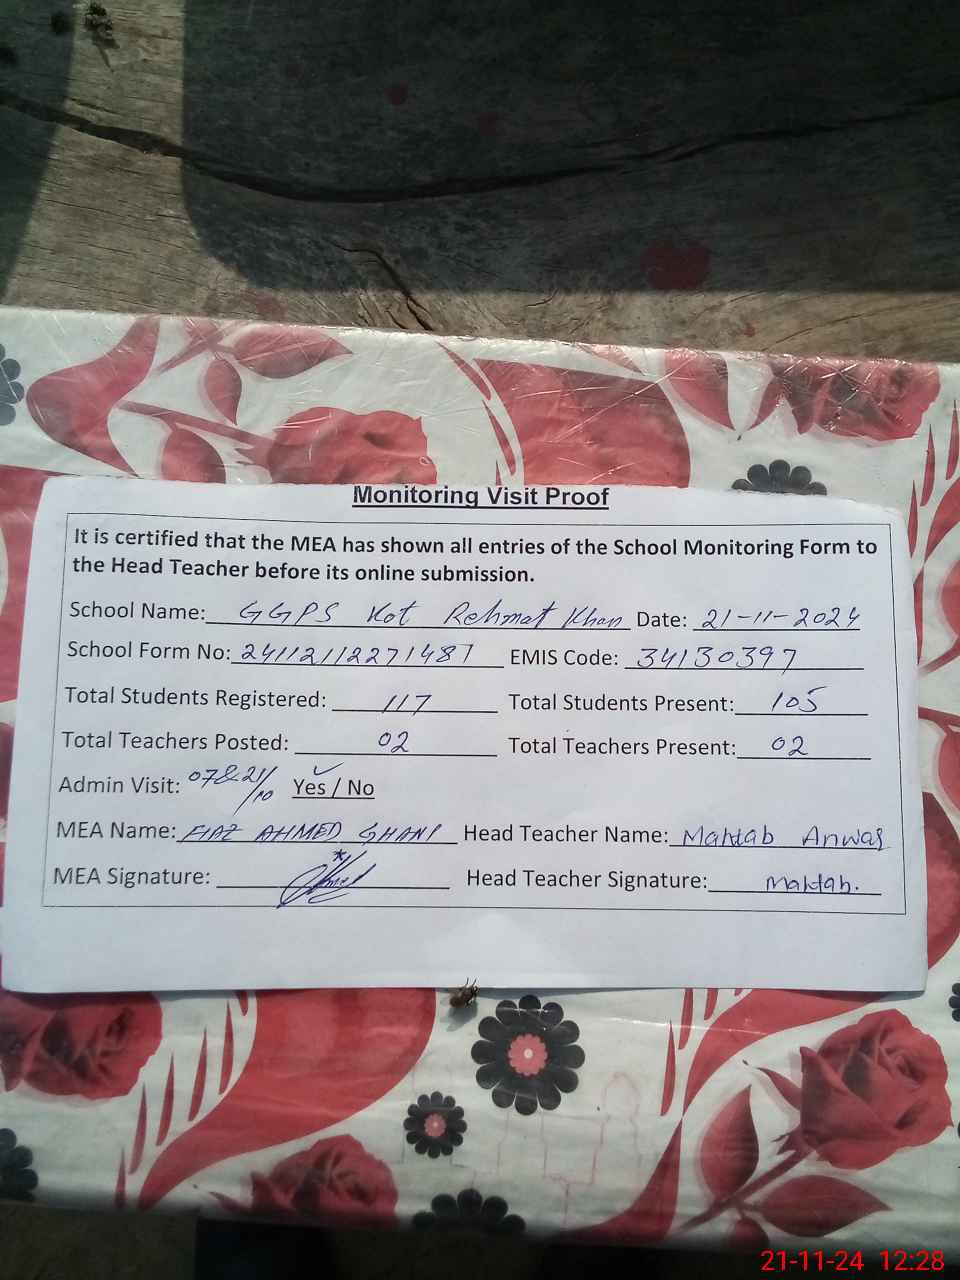 Monitoring Visit Proof
It is certified that the MEA has shown all entries of the School Monitoring Form to
the Head Teacher before its online submission.
School Name: GGPS Kot Rehmat Khan Date: 21-11-2024
School Form No: 24112112271487 EMIS Code: 34130397
Total Students Registered: 117 Total Students Present: 105
Total Teachers Posted: 02 Total Teachers Present: 02
Admin Visit: 07&21/10 Yes / No
MEA Name: FIAZ AHMED GHANI Head Teacher Name: Mahtab Anwar
MEA Signature: Head Teacher Signature: Mahtab.
21-11-24 12:28